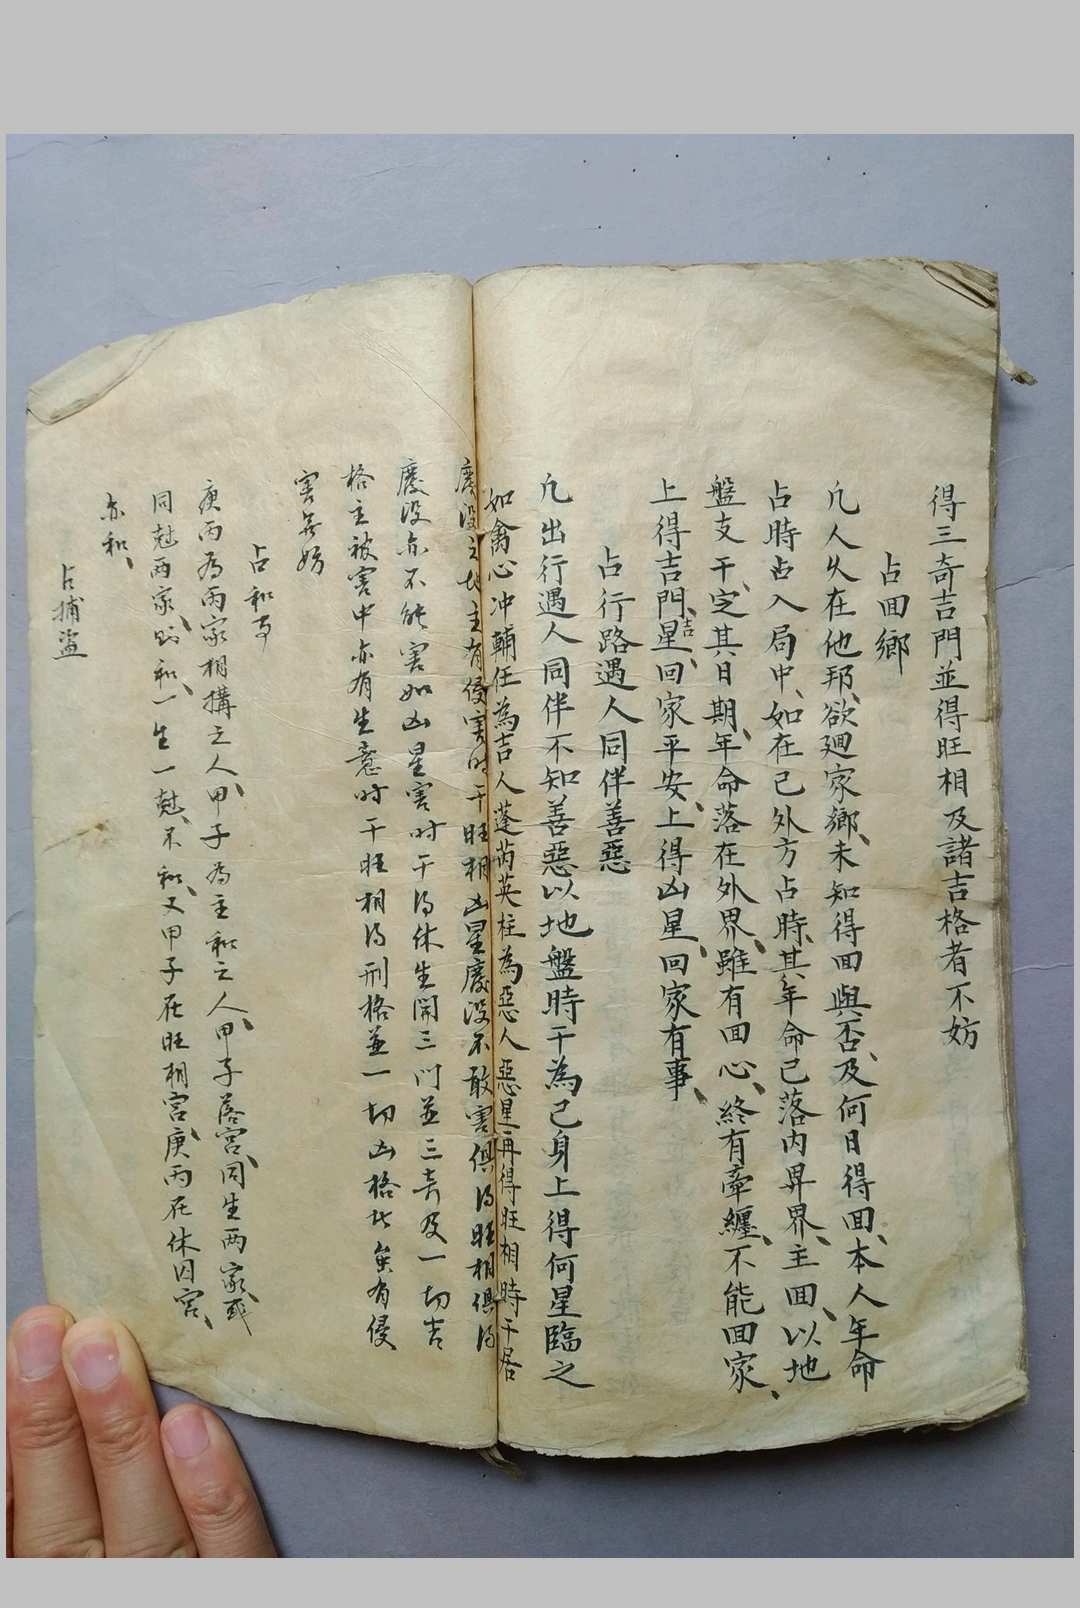 得三奇吉門並得旺相及諸吉格者不妨
占回鄉
凡人久在他邦、欲廻家鄉、未知得回與否、及何日得回、本人年命
占時占入局中、如在己外方占時、其年命已落内界、主回、以地
盤支干、定其日期、年命落在外界、雖有回心、終有牽纏、不能回家、
上得吉門吉星、回家平安、上得凶星、回家有事、
占行路遇人同伴善惡
凡出行遇人同伴不知善惡以地盤時干為己身上得何星臨之
如禽心冲輔任為吉人蓬芮英柱為惡人惡星再得旺相時干居
廢没之地主有侵害时干旺相凶星廢没不敢害俱得旺相俱得
廢没亦不能害如凶星害时干得休生開三门並三奇及一切吉
格主被害中亦有生意时干旺相得刑格並一切凶格皆無有侵
害無妨
占和事
庚丙為兩家相搆之人、甲子為主和之人、甲子落宫、同生兩家、或
同尅兩家、則和、一生一尅、不和、又甲子在旺相宫、庚丙在休囚宫、
亦和、
占捕盜